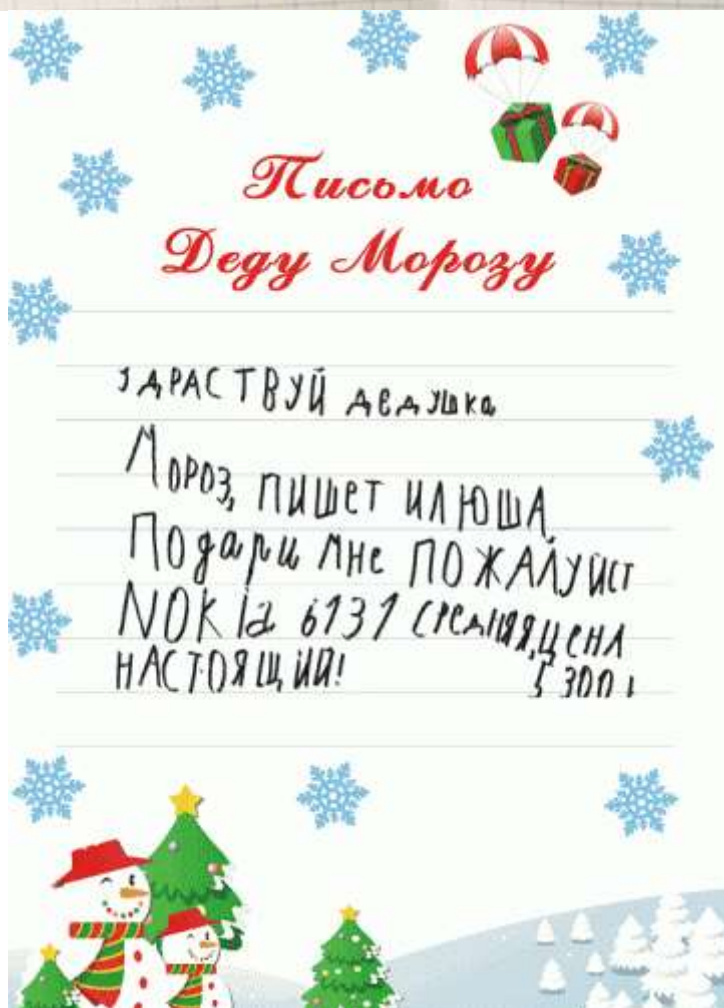 Письмо
Деду Морозу
ЗДРАСТВУЙ дедушка
Мороз, пишет илюша
Подари мне ПОЖАЛУЙСТ
NOKIa 6131 средняя, цена
НАСТОЯЩИЙ! 5 300